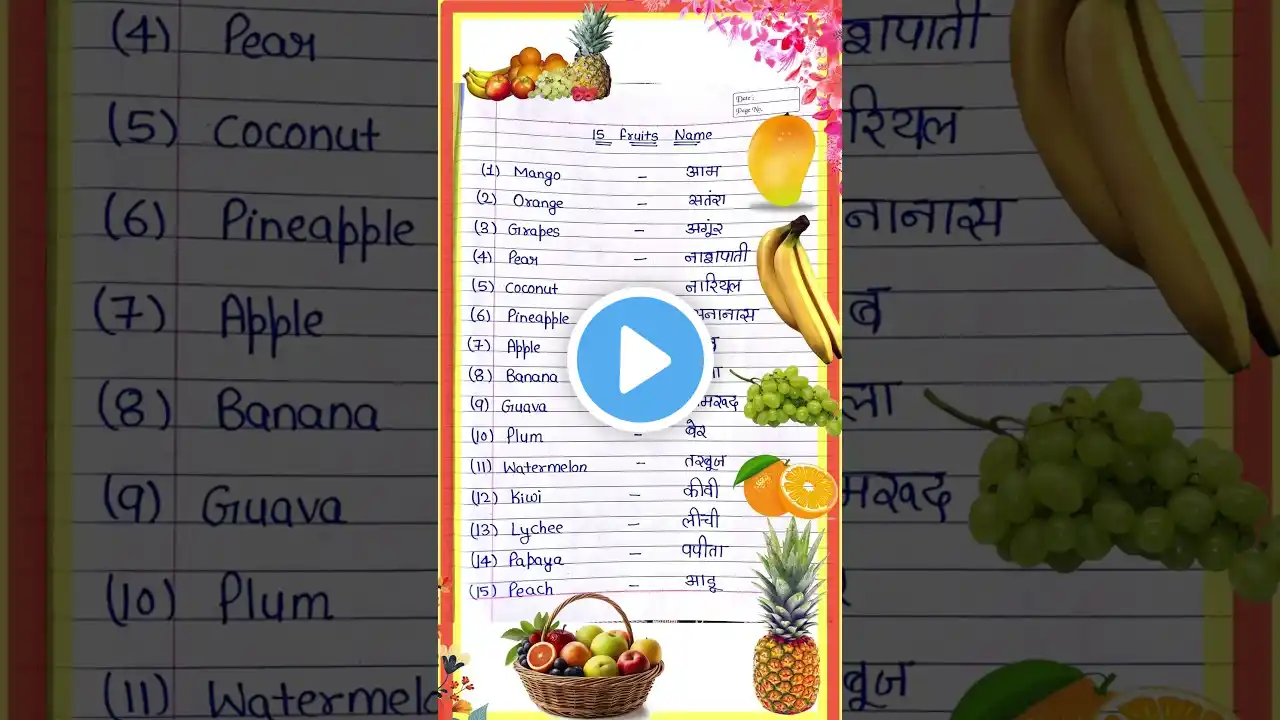 Date:
Page No.
15 fruits Name
(1) Mango - आम
(2) Orange - सतंरा
(3) Grapes - अगूंर
(4) Pear - नाशपाती
(5) Coconut नारियल
(6) Pineapple नानास
(7) Apple
(8) Banana
(9) Guava मरूद
(10) Plum - बेर
(11) Watermelon - तरबूज
(12) Kiwi - कीवी
(13) Lychee - लीची
(14) Papaya - पपीता
(15) Peach - आडू
(4) Pear शपाती
(5) Coconut रियल
(6) Pineapple नानास
(7) Apple ब
(8) Banana ला
(9) Guava मरूद
(10) Plum
(11) Watermel बूज